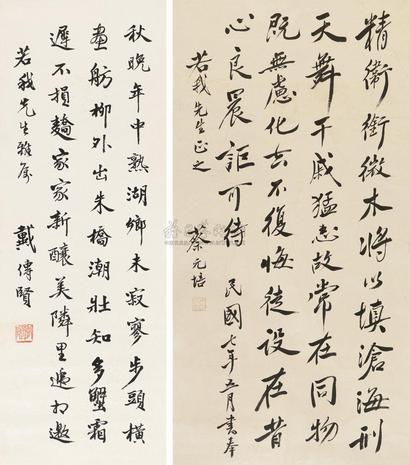 精衛銜微木將以填滄海刑
天舞干戚猛志故常在同物
既無慮化去不復悔徒設在昔
心良晨詎可待 民國七年五月書奉
若我先生正之 蔡元培
秋晚年中熟湖鄉未寂寥步頭橫
畫舫柳外出朱橋潮壯知多蟹霜
遲不損蕎家家新釀美隣里遞相邀
若我先生雅屬 戴傳賢